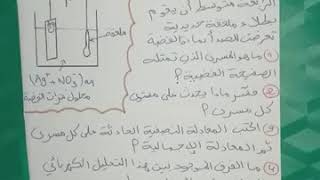 متوسط أن يقوم
بطلاء ملعقة حديدية
ملعقة
(Ag⁺ + NO₃⁻)aq
محلول نترات الفضة
① ما هو المسرى الذي تمثله
الصفيحة الفضية؟
② فسّر ماذا يحدث على مستوى
كل مسرى؟
③ اكتب المعادلة النصفية الحادثة على كل مسرى
ثم المعادلة الإجمالية؟
④ ما الفرق الموجود بين هذا التحليل الكهربائي